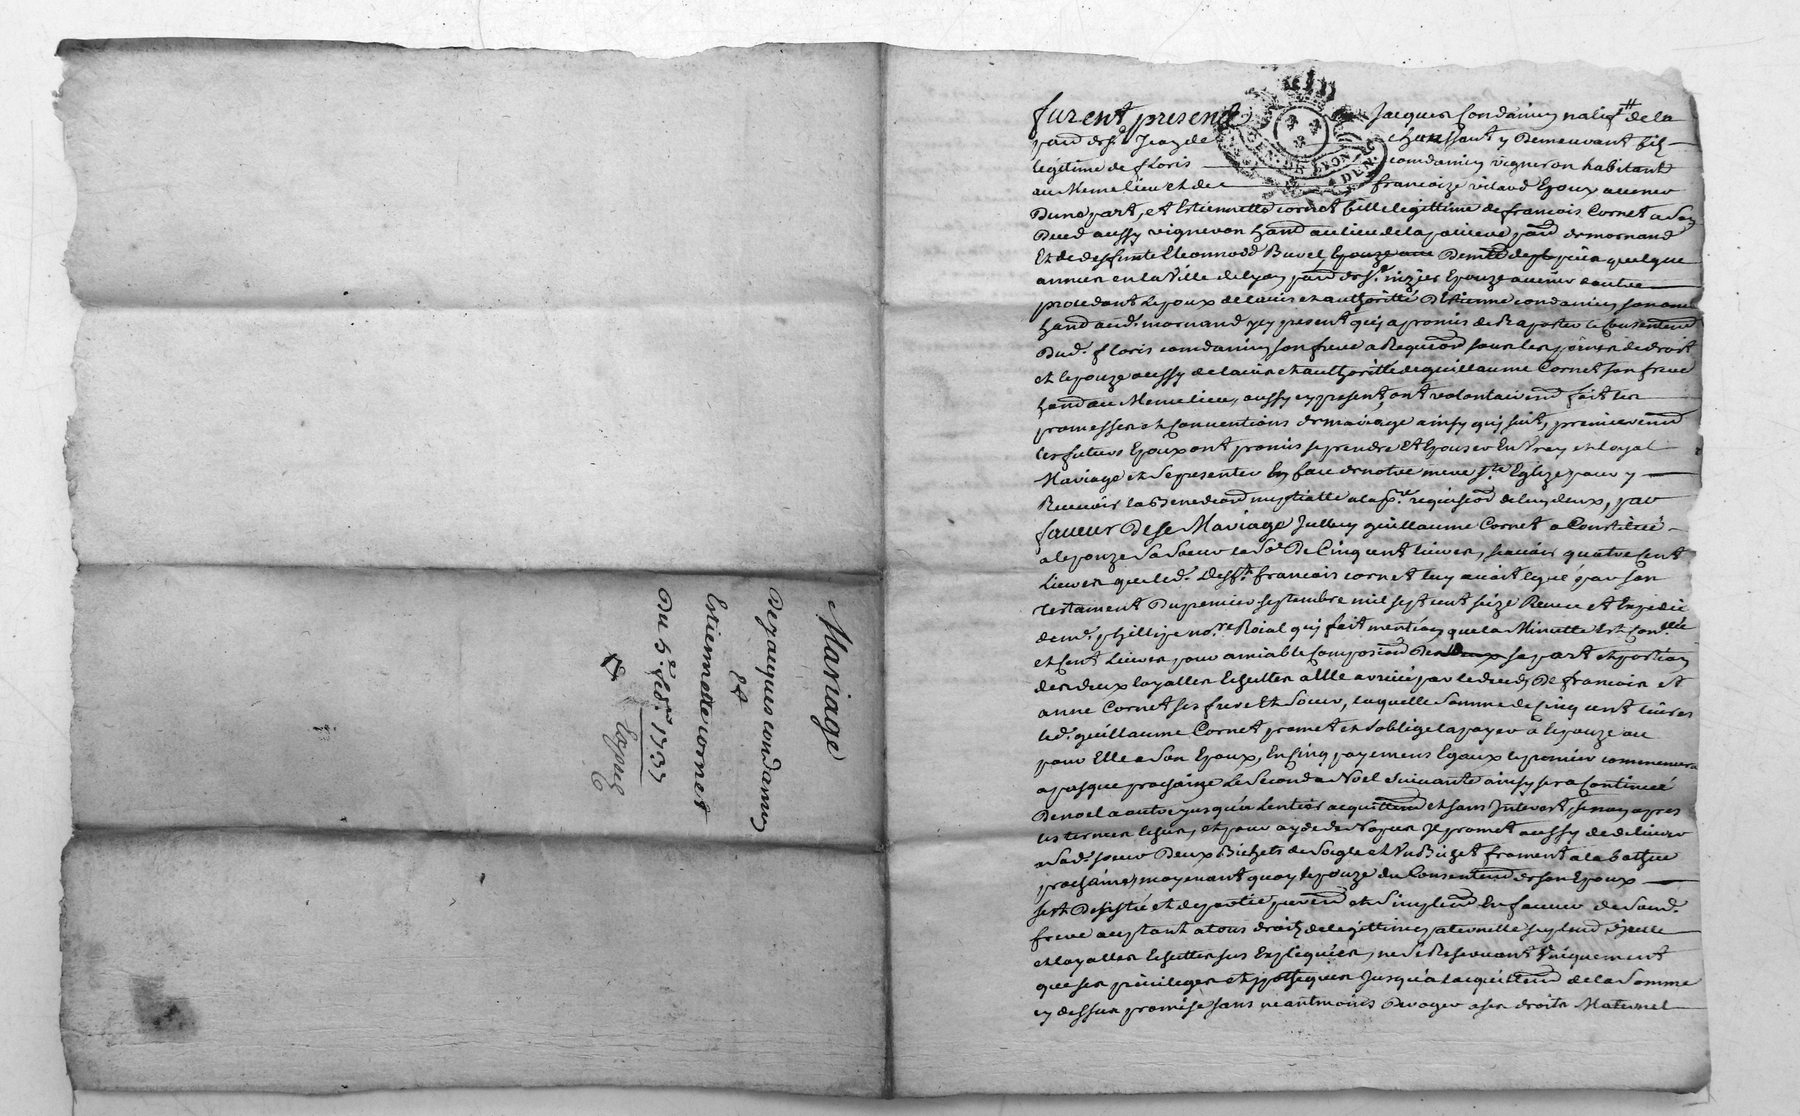 Mariage
De jacques condamin
Et
Estiennette cornet
Du 5e. febr. 1737
GEN. DE LYON
DEN.
furent present Jacques Condamin natif de la
parr de St. Jean de chaussant y Demeurant fils
legitime de floris condamin vigneron habitant
au Meme lieu et de francoize vilard Epoux avenir
Dune part, et Estiennette cornet fille legittime de francois Cornet a son
Deced aussy vigneron habnd au lieu de la parr de mornand
Et de deffuinte Eleonnord Buvel, Demte depuis quelque
annees en la Ville de lyon parr de St. nizier Epouze avenir dautre
procedant lepoux de lavis et authoritté DEtienne condamin son oncle
hand aud. mornand icy present qui a promis de Raporter le Consentemt
Dud. floris condamin son frere a Requision sous les peines de droit
et lepouze aussy de lavis et authoritté de guillaume Cornet son frere
hand au Meme lieu, aussy icy present, ont volontairemt fait les
promesses et Conventions de mariage ainsy qui suit, premierement
les futurs Epoux ont promis se prendre et Epouser En Vray et Loyal
Mariage et se presenter En face de notre mere Ste. Eglize pour y
Recevoir la Benediction nuptialle a la pre. requision de luy deux, par
faveur De se Mariage Led guillaume Cornet a Constitué
a lepouze sa soeur la so. De Cinq cent livres, scavoir quatre Cent
Livres que led. deft. francois cornet luy avoit legué par son
testament Du premier septembre mil sept cent seize Receu et Expedié
de me. phillipe nore. Roial qui fait mention que la Minutte Est Conllée
et Cent Livres pour amiable Composition De sa part et portion
des deux layalles Echuttes a Elle arrivée par le deceds De francois et
anne Cornet ses frere et soeur, laquelle somme de Cinq cent livres
led. guillaume Cornet promet et soblige la payer à lepouze ou
pour Elle a son Epoux, En Cinq payemens Egaux le premier commencera
a pasque prochaine Le second a Noel suivante ainsy sera Continué
De noel a autre jusqu'a Lentier acquittemt et sans Interest, sinon apres
les termes Echus, et pour ayde de Nopces Il promet aussy de delivrer
a sad. soeur Deux Bichets de Soigle et Un Bichet froment a la
prochaine, moyenant quoy lepouze du Consentemt de son Epoux
sest Desisté et departie purement et simplemt En faveur de sond.
frere acceptant a tous droits de legittime paternelle suplemt dicelle
et layalles Echuttes sus Expliquées, ne se Reservant Uniquement
que ses privileges et hypotheques Jusqu'a lacquittemt de la somme
cy dessus promise sans neantmoins Deroger a ses droits Maternel